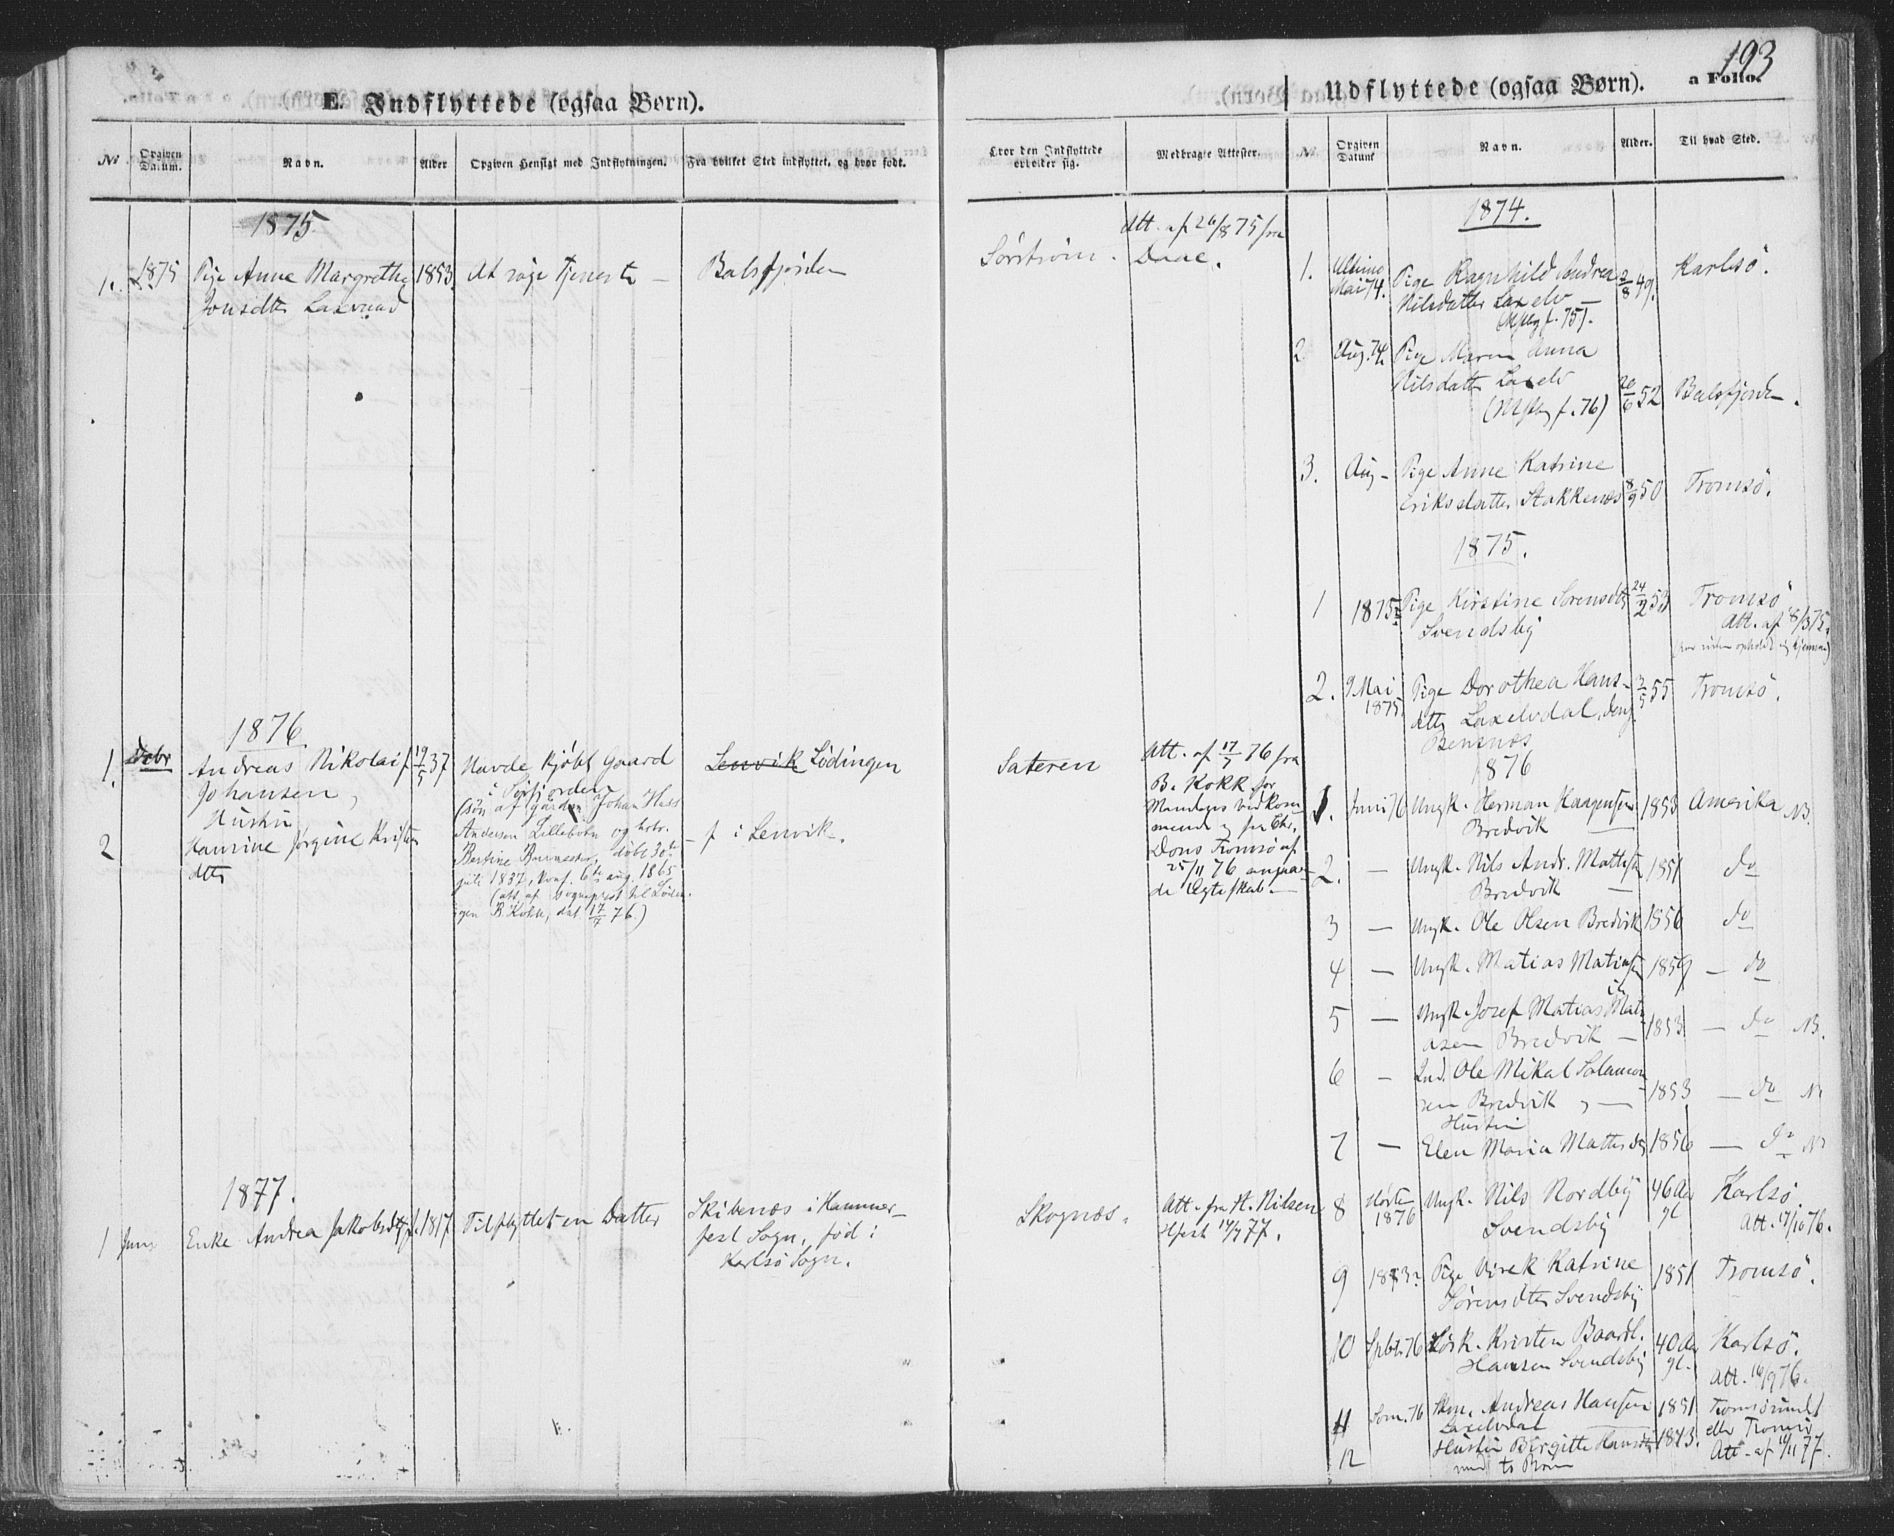 E. Indflyttede (ogsaa Børn).
No.
Opgiven Datum.
Navn.
Alder
Opgiven Hensigt med Indflytningen.
Fra hvilket Sted indflyttet, og hvor født.
1875
1. 1875 Pige Anne Margrethe 1853 At søge Tjeneste — Balsfjorden
Jonsdtr
1876
1. Debr Andreas Nikolai f. 19/5 37 Havde kjøbt Gaard Lenvik Lødingen
Johansen, i Sørfjorden
Hustru (søn af gårdm Johan Hass
2 Hansine Jørgine Krist Andersen Lillebohn og hstr. f i Lenvik.
dtr Bertine døbt 30te
juli 1837, konf. 6te aug. 1865
(att. af Sogneprest til Lødin-
gen B. Kokk, dat 17/7 76.)
1877.
1 Juni Enke Andrea Jakobsdtr f. 1817 Tilflyttet en Datter Skibenæs i Hammer-
fest Sogn, fød i
Karlsø Sogn.
193
Udflyttede (ogsaa Børn). a Folio.
Hvor den Indflyttede opholder sig.
Medbragte Attester.
No.
Opgiven Datum
Navn.
Alder.
Til hvad Sted.
Att. af 26/8 75 fra
Sørstrøm. Daae.
Sateren Att. af 17/7 76 fra
B. Kokk for
Mandens vedkom
mende og fra Chr.
Dons Tromsø af
25/11 76 angaaen
de Ægteskab.—
Skognæs. Att. fra H. Nilsen
Hfest 14/7 77.
1874.
1. Ultimo Mai 74. Pige Ragnhild Andrea 2/8 49. Karlsö.
Nilsdatter Laxelv —
2. Aug. 74 Pige Maren Anna
Nilsdatter Laxelv 26/6 52 Balsfjorden.
3. Aug — Pige Anne Katrine
Eriksdatter Stakkenæs 8/9 50 Tromsö.
1875.
1 1875 Pige Kirstine Sörensdtr 24/2 53 Tromsö
Svendsby Att. af 8/3 75.
2. 9 Mai 1875. Pige Dorothea Hans- 3/5 55 Tromsö.
dtr Laxelvdal,
Bensnæs
1876
1. Juni 76 Ungk. Herman Haagensen 1853 Amerika NB.
Bredvik
2. — Ungk. Nils Andr. Mattisen 1851 do
Bredvik —
3 — Ungk. Ole Olsen Bredvik 1856 do
4 — Ungk. Matias Matiasen 1859 — do
5 — Ungk. Josef Matias Mati-
asen Bredvik — 1853 — do NB.
6 — Ind. Ole Mikal Salamon-
sen Bredvik, — 1853 — do N
Hustru
7 — Elen Maria Mattisdtr 1856 — do N
8 Høsten 1876 Ungk. Nils Nordby 46 Aar gl Karlsö.
Svendsby Att. 17/10 76.
9 1873? Pige Virek Katrine 1851 Tromsö.
Sörensdtr Svendsby
10 Spbt. 76 Løsk. Kristen Baardl. 40 Aar gl. Karlsö.
Hansen Svendsby Att. 16/9 76.
11 Som. 76 Andreas Hansen 1851 Tromsøsund
Laxelvdal eller Tromsö
12 Hustru Birgitte Hansdtr 1843. Att. af 11/11 77.
med to Børn